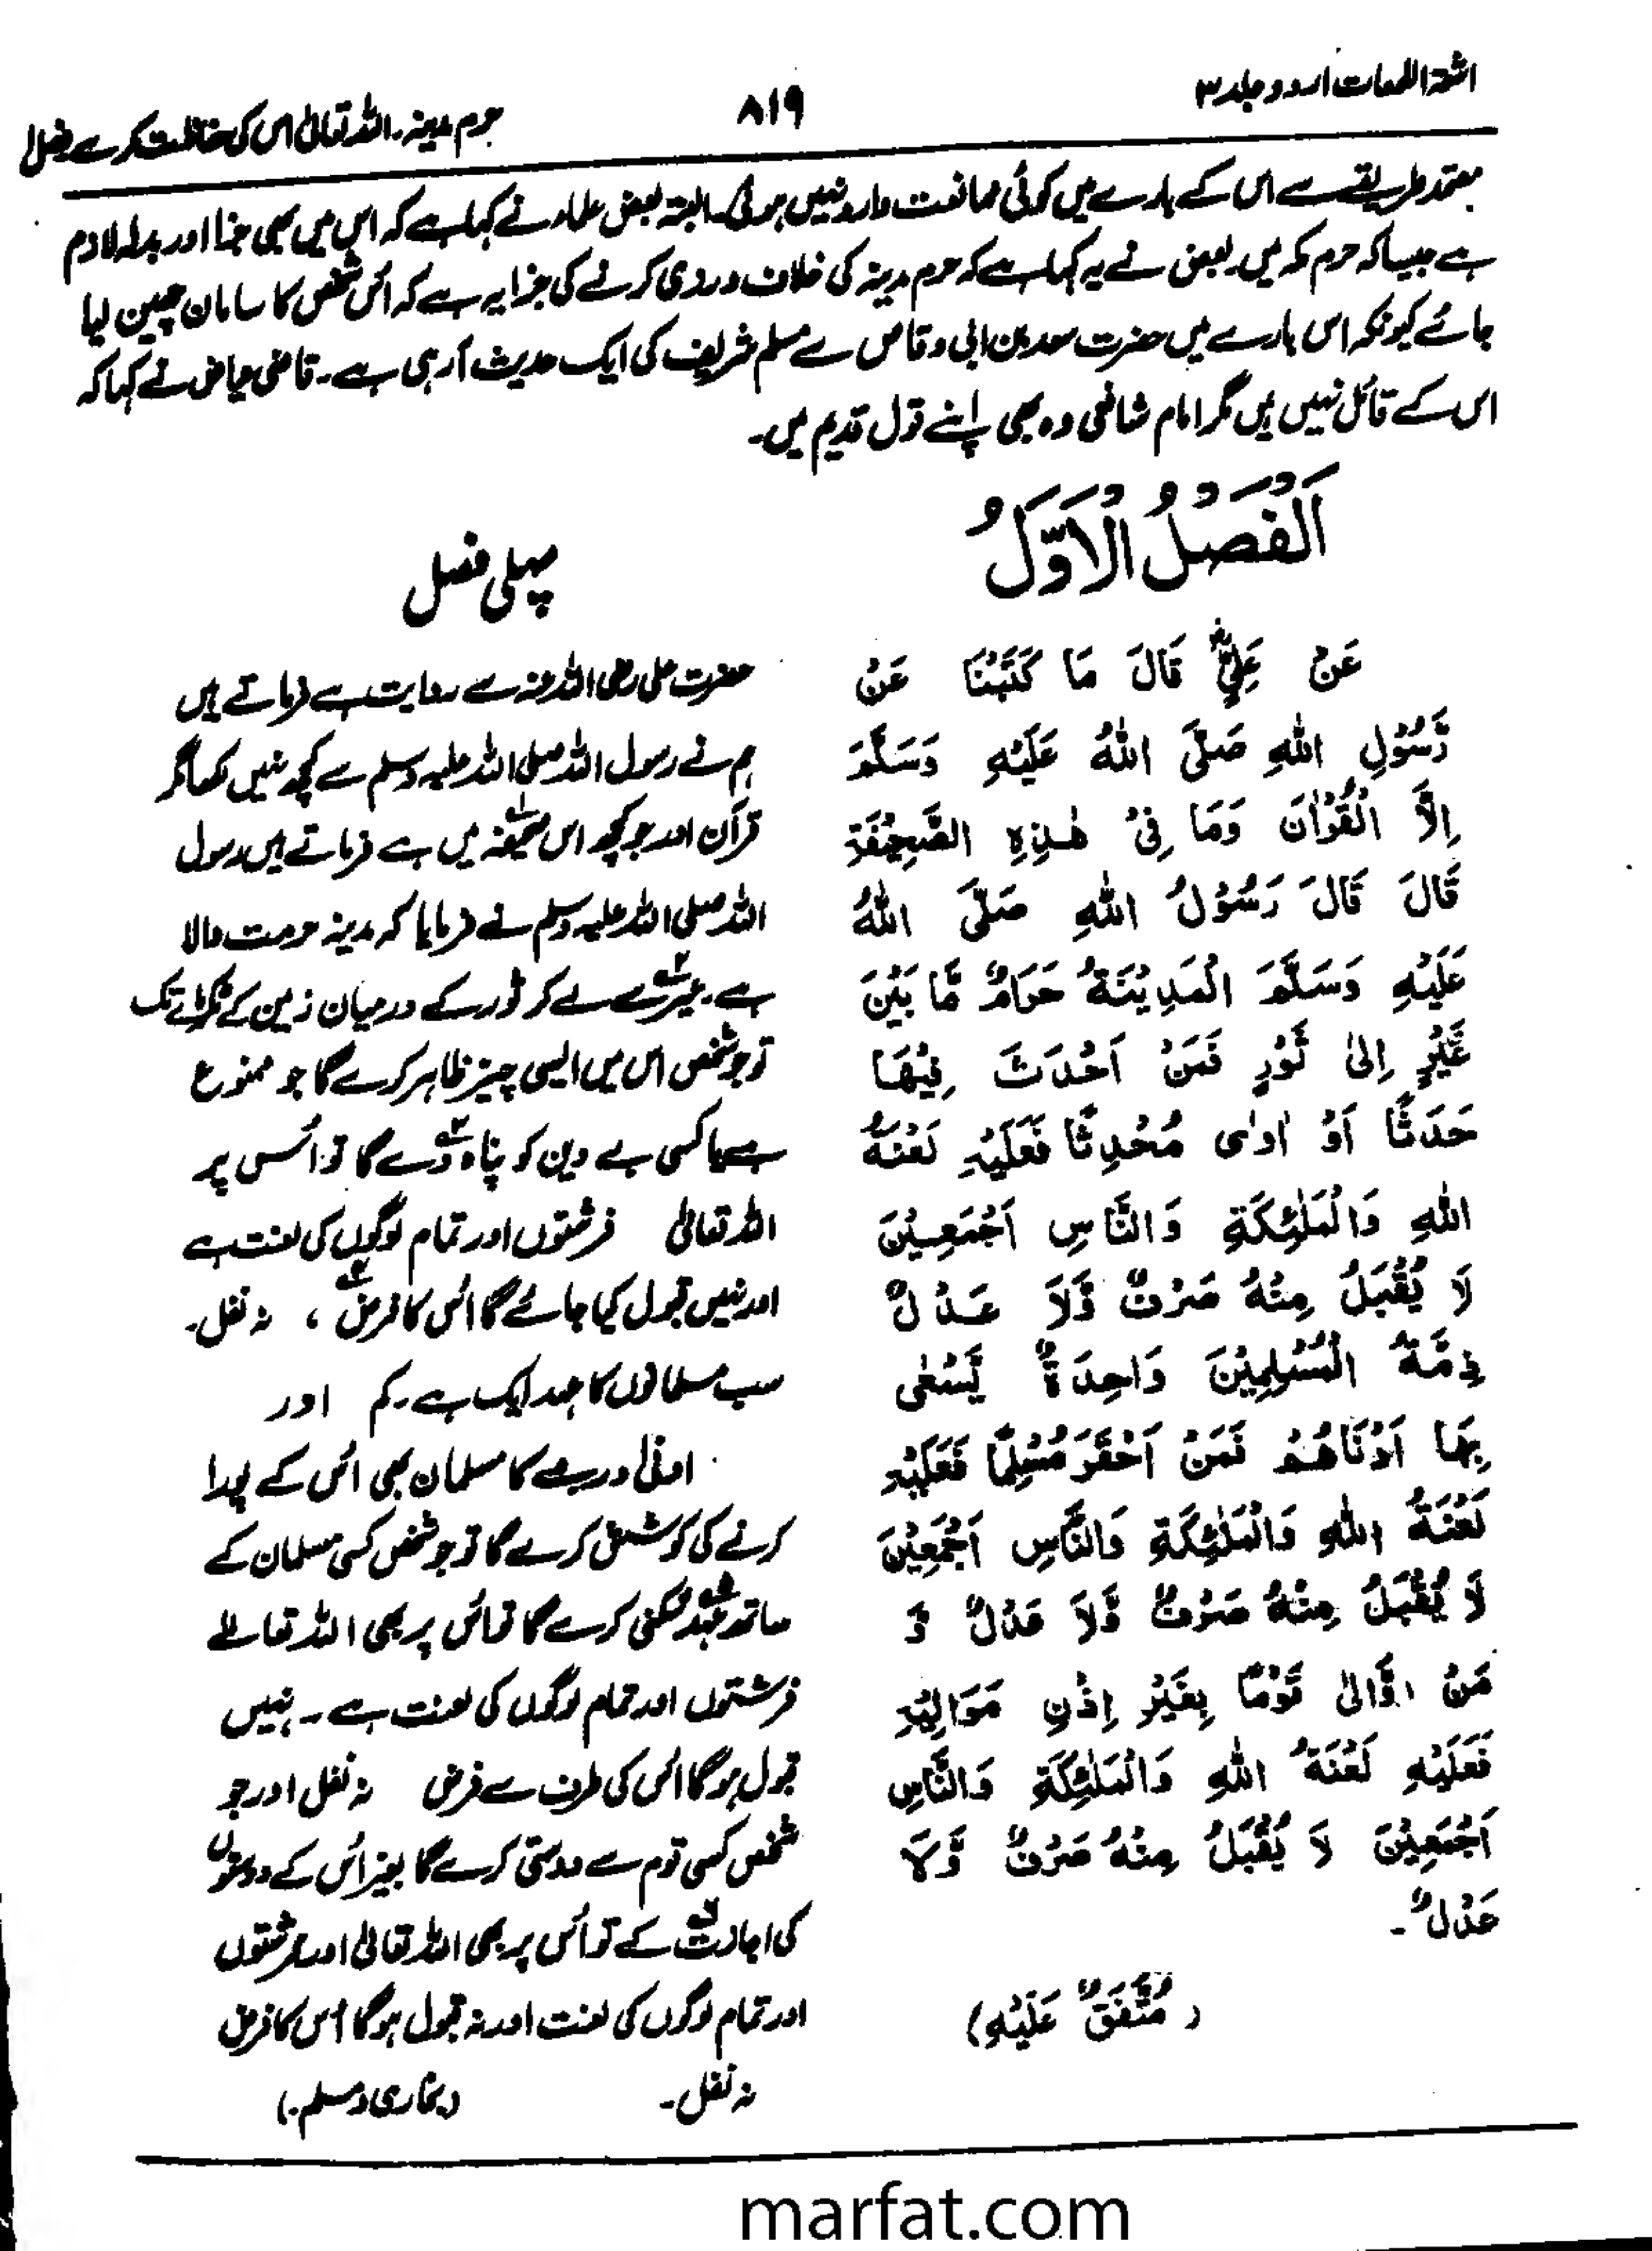 اشعۃ اللمعات اردو جلد ۳
۸۱۹
حرم مدینہ۔ اللہ تعالیٰ اس کی حفاظت کرے فصل ا
معتمد طریقے سے اس کے بارے میں کوئی ممانعت وارد نہیں ہوئی۔ البتہ بعض علماء نے کہا ہے کہ اس میں بھی جزا اور بدلہ لازم
ہے جیساکہ حرم مکہ میں بعض نے یہ کہا ہے کہ حرم مدینہ کی خلاف وردی کرنے کی جزا یہ ہے کہ اس شخص کا سامان چھین لیا
جائے کیونکہ اس بارے میں حضرت سعد بن ابی وقاص سے مسلم شریف کی ایک حدیث آ رہی ہے۔ قاضی عیاض نے کہا کہ
اس کے قائل نہیں ہیں مگر امام شافعی وہ بھی اپنے قول قدیم میں۔
اَلْفَصْلُ الْاَوَّلُ
عَنْ عَلِيٍّ قَالَ مَا كَتَبْنَا عَنْ
رَّسُوْلِ اللهِ صَلَّى اللهُ عَلَيْهِ وَسَلَّمَ
اِلَّا الْقُرْاٰنَ وَمَا فِیْ هٰذِهِ الصَّحِيْفَةِ
قَالَ قَالَ رَسُوْلُ اللهِ صَلَّى اللهُ
عَلَيْهِ وَسَلَّمَ الْمَدِيْنَةُ حَرَامٌ مَّا بَيْنَ
عَيْرٍ اِلىٰ ثَوْرٍ فَمَنْ اَحْدَثَ فِيْهَا
حَدَثًا اَوْ اٰوٰى مُحْدِثًا فَعَلَيْهِ لَعْنَةُ
اللهِ وَالْمَلٰئِكَةِ وَالنَّاسِ اَجْمَعِيْنَ
لَا يُقْبَلُ مِنْهُ صَرْفٌ وَّلَا عَدْلٌ
ذِمَّةُ الْمُسْلِمِيْنَ وَاحِدَةٌ يَّسْعٰى
بِهَا اَدْنَاهُمْ فَمَنْ اَخْفَرَ مُسْلِمًا فَعَلَيْهِ
لَعْنَةُ اللهِ وَالْمَلٰئِكَةِ وَالنَّاسِ اَجْمَعِيْنَ
لَا يُقْبَلُ مِنْهُ صَرْفٌ وَّلَا عَدْلٌ وَ
مَنْ وَّالىٰ قَوْمًا بِغَيْرِ اِذْنِ مَوَالِيْهِ
فَعَلَيْهِ لَعْنَةُ اللهِ وَالْمَلٰئِكَةِ وَالنَّاسِ
اَجْمَعِيْنَ لَا يُقْبَلُ مِنْهُ صَرْفٌ وَّلَا
عَدْلٌ۔
(مُتَّفَقٌ عَلَيْهِ)
پہلی فصل
حضرت علی رضی اللہ عنہ سے روایت ہے فرماتے ہیں
ہم نے رسول اللہ صلی اللہ علیہ وسلم سے کچھ نہیں لکھا مگر
قرآن اور جو کچھ اس صحیفہ۱ میں ہے فرماتے ہیں رسول
اللہ صلی اللہ علیہ وسلم نے فرمایا کہ مدینہ حرمت والا
ہے۔ عیر۲ سے لے کر ثور کے درمیان زمین کے ٹکڑے تک
تو جو شخص اس میں ایسی چیز ظاہر کرے گا جو ممنوع
ہے یا کسی بے دین کو پناہ۳ دے گا تو اُس پر
اللہ تعالیٰ فرشتوں اور تمام لوگوں کی لعنت ہے
اور نہیں قبول کیا جائے گا اُس کا فرض۴، نہ نفل۔
سب مسلمانوں کا عہد ایک ہے۔ کم اور
ادنیٰ درجے کا مسلمان بھی اُس کے پورا
کرنے کی کوشش کرے گا تو جو شخص کسی مسلمان کے
ساتھ عہد۵ شکنی کرے گا تو اُس پر بھی اللہ تعالےٰ
فرشتوں اور تمام لوگوں کی لعنت ہے۔ نہیں
قبول ہوگا اُس کی طرف سے فرض نہ نفل اور جو
شخص کسی قوم سے دوستی کرے گا بغیر اُس کے دوستوں
کی اجازت۶ کے تو اُس پر بھی اللہ تعالیٰ اور فرشتوں
اور تمام لوگوں کی لعنت اور نہ قبول ہوگا اُس کا فرض
نہ نفل۔ (بخاری و مسلم۔)
marfat.com